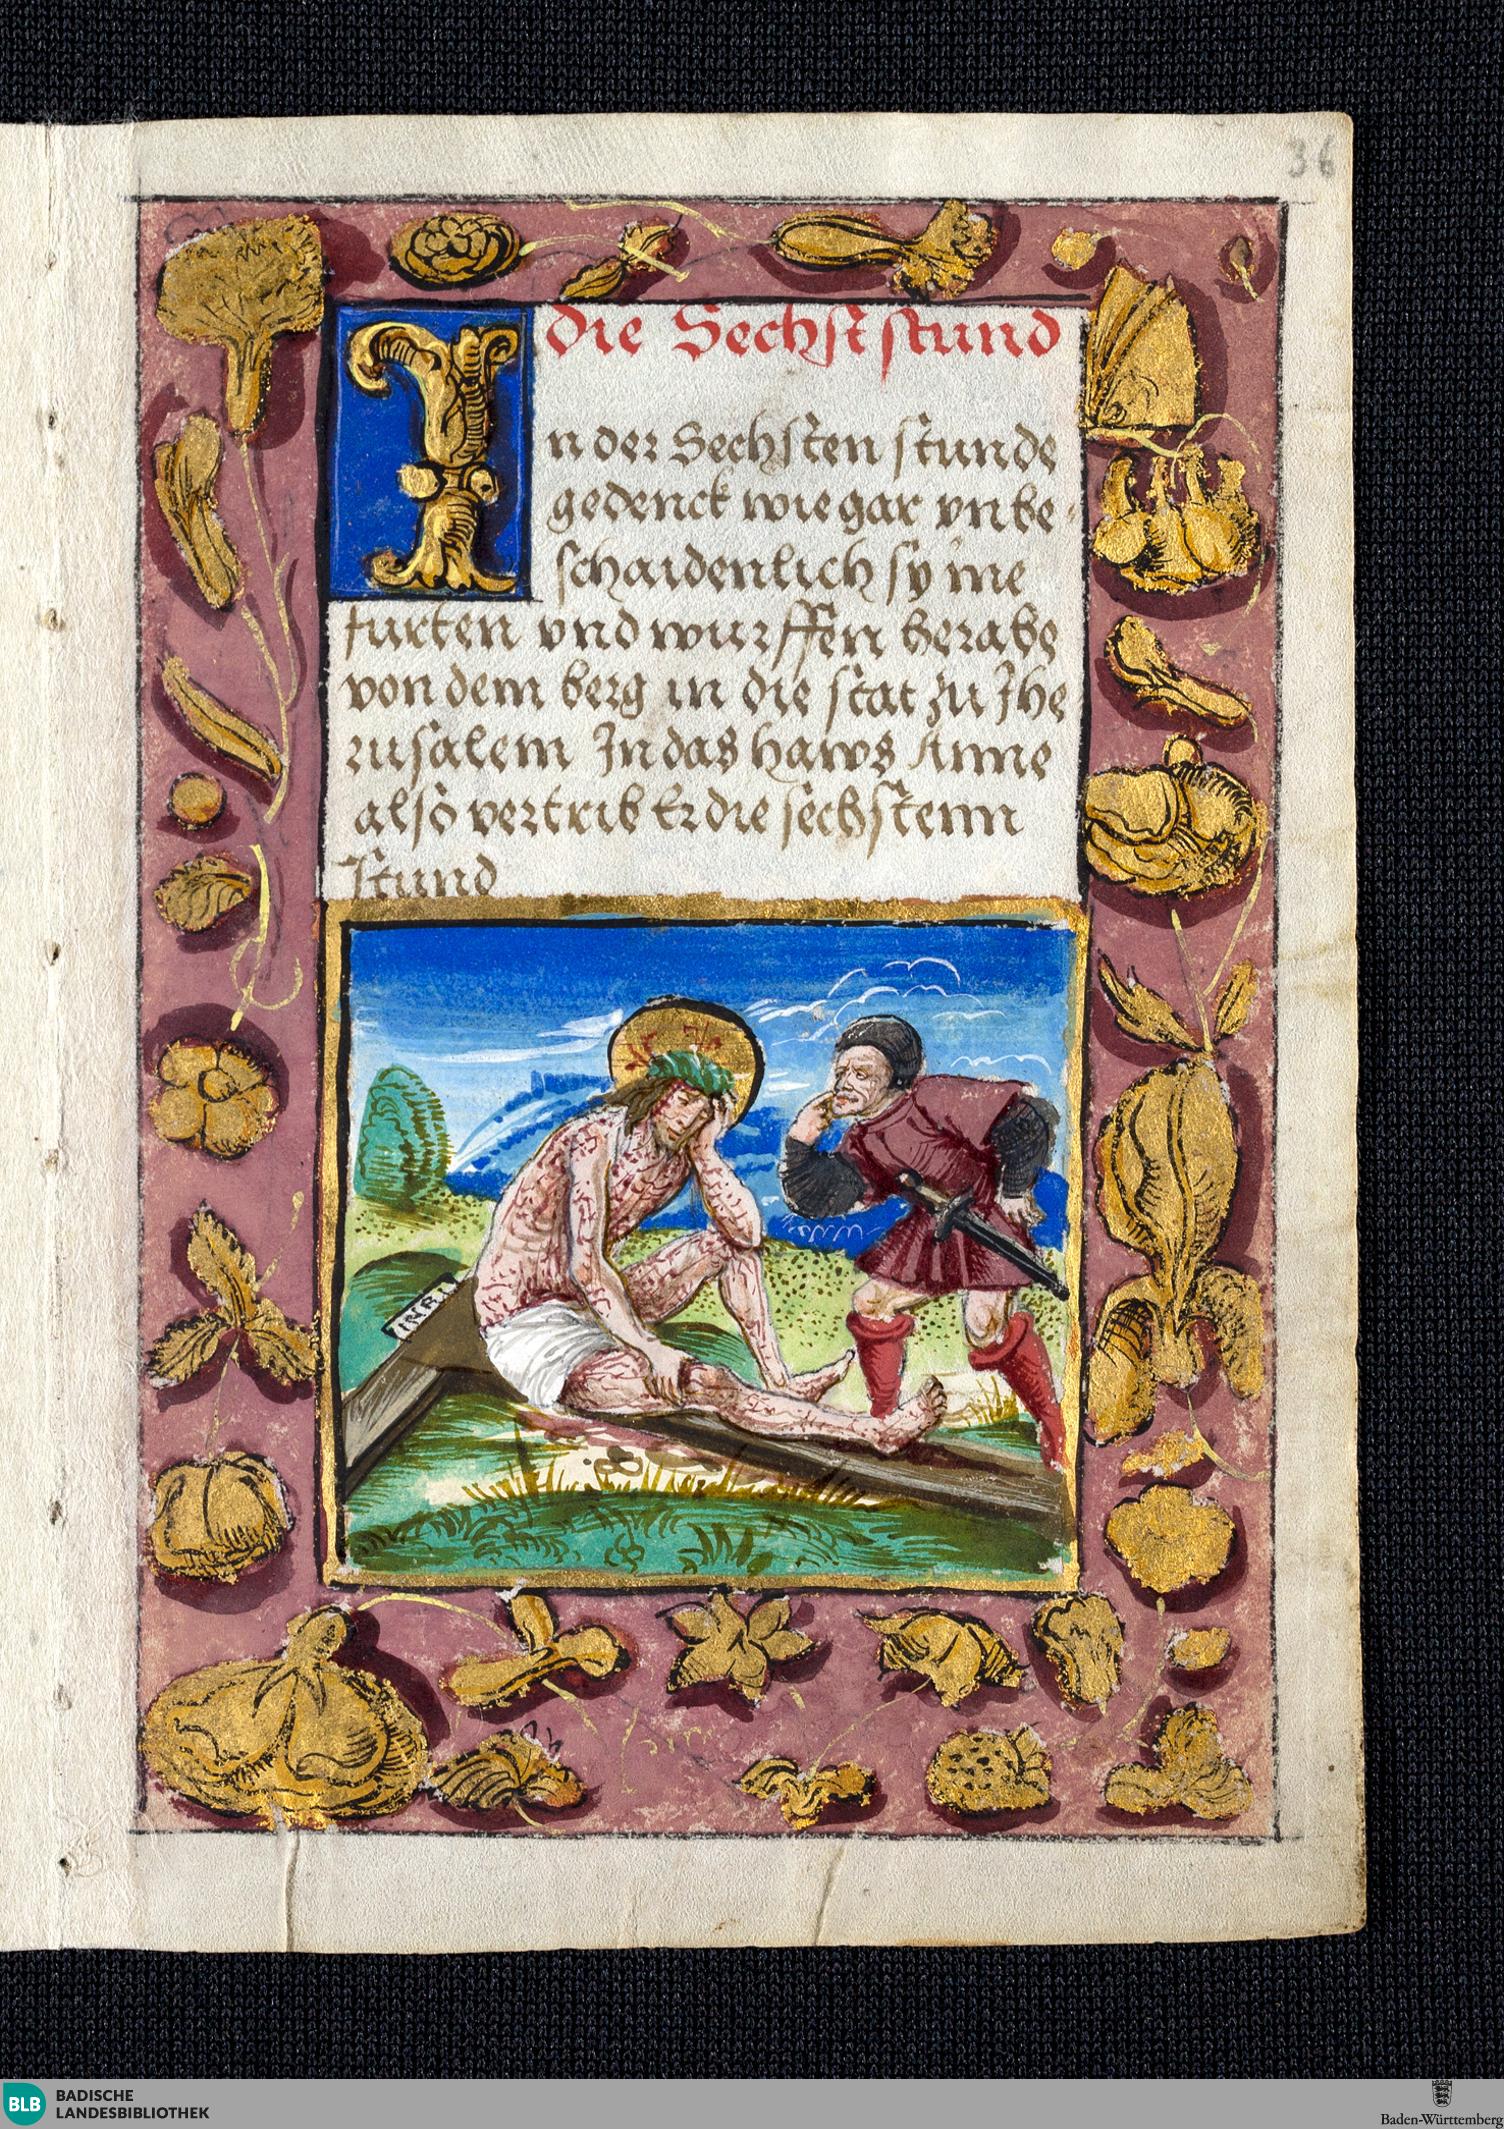 36
Die Sechst stund
In der Sechsten stunde
gedenck wie gar vnbe
schaidenlich sy ine
furten vnd wurffen herabe
von dem berg in die stat zu Jhe
rusalem In das haws Anne
also vertrib Er die sechstenn
stund
INRI
BLB BADISCHE
LANDESBIBLIOTHEK
Baden-Württemberg